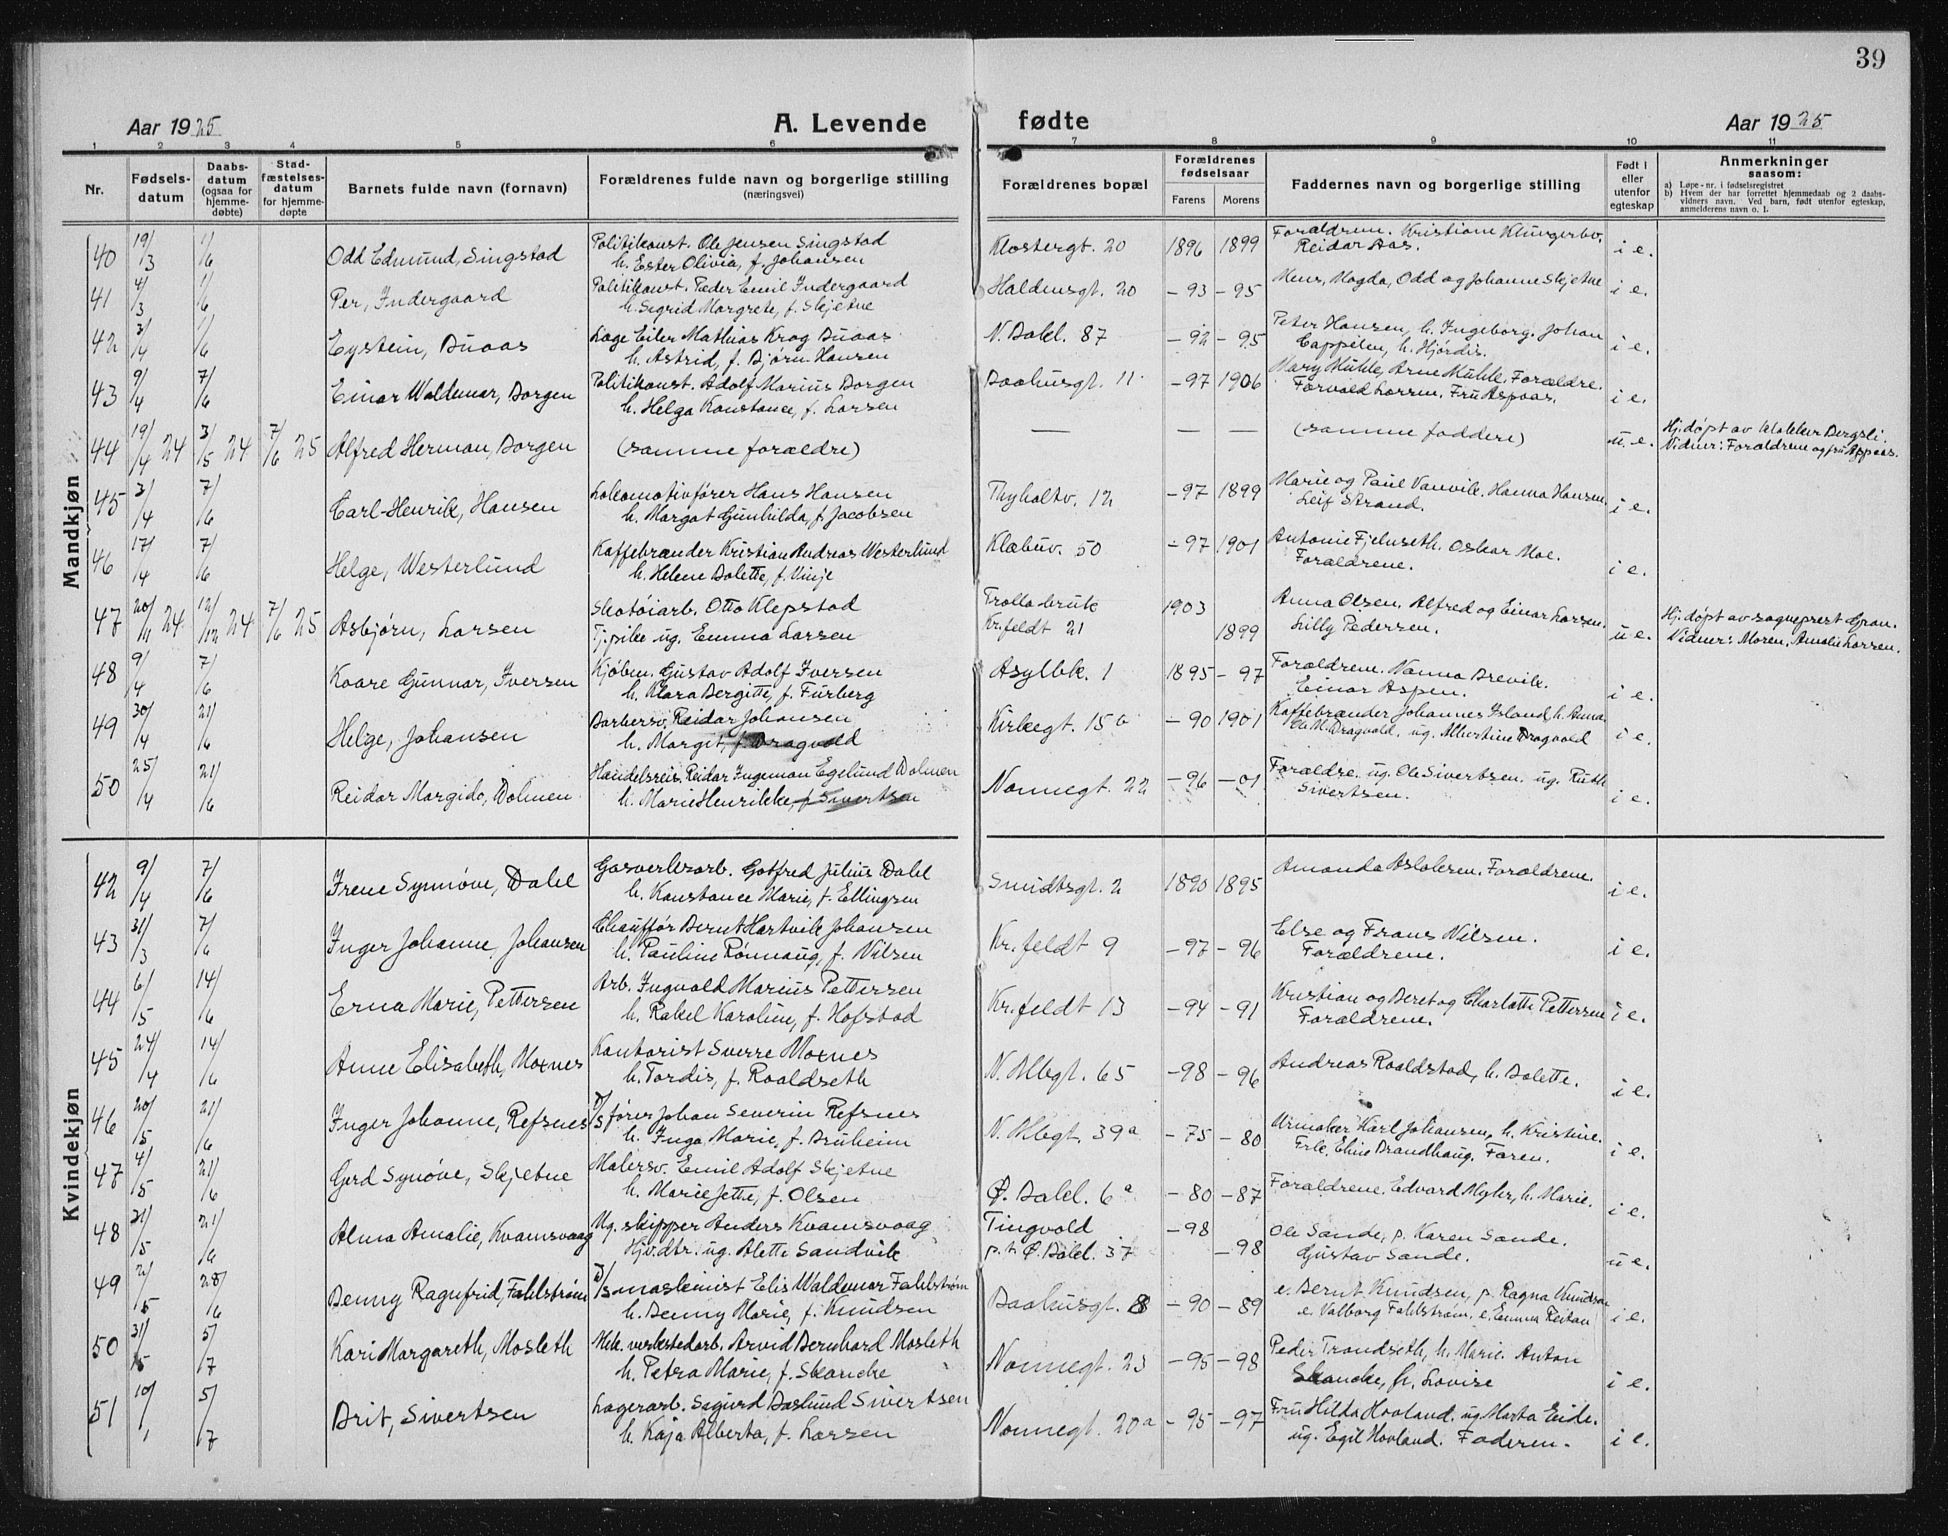 39
Aar 1925 A. Levende fødte Aar 1925
1 2 3 4 5 6 7 8 9 10 11
Nr. Fødsels-datum Daabs-datum (ogsaa for hjemme-døbte) Stad-fæstelses-datum for hjemme-døpte Barnets fulde navn (fornavn) Forældrenes fulde navn og borgerlige stilling (næringsvei) Forældrenes bopæl Forældrenes fødselsaar Farens Morens Faddernes navn og borgerlige stilling Født i eller utenfor egteskap Anmerkninger saasom:
a) Løpe-nr. i fødselsregistret
b) Hvem der har forrettet hjemmedaab og 2 daabs-vidners navn. Ved barn, født utenfor egteskap, anmelderens navn o. l.
Mandkjøn
40 19/3 1/6 Odd Edmund, Singstad Politikonst. Ole Jensen Singstad Klostergt. 20 1896 1899 Forældrene. Kristiane Klungerbo. i e.
h. Ester Olivia, f. Johansen Reidar Aas.
41 4/3 1/6 Per, Indergaard Politikonst. Peder Emil Indergaard Haldensgt. 20 -93 -95 Mens, Magda, Odd og Johanne Skjetne i e.
h. Sigrid Margrete, f. Skjetne
42 3/4 1/6 Eystein, Buaas Læge Eiler Mathias Krog Buaas N. Bakl. 87 -92 -95 Peter Hansen, h. Ingeborg. Johan i e.
h. Astrid, f. Bjørn-Hansen Cappelen, h. Hjørdis.
43 9/4 7/6 Einar Waldemar, Borgen Politikonst. Adolf Marius Borgen Baahusgt. 11 -97 1906 Mary Muhle, Arne Muhle. Forældre. i e.
h. Helga Konstance, f. Larsen Torvald Larsen. Fru Aspaas.
44 19/4 24 3/5 24 7/6 25 Alfred Herman, Borgen (samme forældre) — — — (samme faddere) u. e. Hj.døpt av klokker Bergsli.
Vidner: Forældrene og fru Aspaas.
45 3/4 7/6 Carl-Henrik, Hansen Lokomotivfører Hans Hansen Thyholtv. 12 -97 1899 Marie og Paul Vanvik. Hanna Hansen. i e.
h. Margot Gunhilda, f. Jacobsen Leif Strand.
46 17/4 7/6 Helge, Westerlund Kaffebrænder Kristian Andreas Westerlund Klæbuv. 50 -97 1901 Antonie Fjelnseth. Oskar Moe. i e.
h. Helene Dolette, f. Vinje Forældrene.
47 20/11 24 12/12 24 7/6 25 Asbjørn, Larsen Skotøiarb. Otto Klepstad Trolla bruk 1903 Anna Olsen. Alfred og Einar Larsen. u e. Hj.døpt av sogneprest Gran.
Tj.pike ug. Emma Larsen Kr.feldt 21 1899 Lilly Pedersen. Vidner: Moren. Amalie Larsen.
48 9/4 7/6 Kaare Gunnar, Iversen Kjøbm. Gustav Adolf Iversen Asylbk. 1 1895 -97 Forældrene. Nanna Brevik. i e.
h. Klara Bergitte, f. Furberg Einar Aspen.
49 30/4 21/6 Helge, Johansen Barbersv. Reidar Johansen Kirkegt. 15 b -90 1901 Kaffebrænder Johannes Island, h. Anna. i e.
h. Margit, f. Dragvold M. Dragvold, ug. Albertine Dragvold
50 25/4 21/6 Reidar Margido, Dolmen Handelsreis. Reidar Ingeman Egelund Dolmen Nonnegt. 22 -96 -01 Forældre. ug. Ole Sivertsen. ug. Ruth i e.
h. Marie Henrikke, f. Sivertsen Sivertsen.
Kvindekjøn
42 9/4 7/6 Irene Synnøve, Dahl Gasverksarb. Gotfred Julius Dahl Smidtsgt. 2 1890 1895 Amanda Aslaksen. Forældrene. i e.
h. Konstance Marie, f. Ellingsen
43 31/3 7/6 Inger Johanne, Johansen Chauffør Bernt Hartvik Johansen Kr.feldt 9 -97 -96 Else og Frans Nilsen. i e.
h. Pauline Rønnaug, f. Nilsen Forældrene.
44 6/5 14/6 Erna Marie, Pettersen Arb. Ingvald Marius Pettersen Kr.feldt 13 -94 -91 Kristian og Beret og Charlotte Pettersen i e.
h. Rakel Karoline, f. Hofstad Forældrene.
45 24/4 14/6 Anne Elisabeth, Moxnes Kontorist Sverre Moxnes N. Albgt. 65 -98 -96 Andreas Roaldstad, h. Dolette. i e.
h. Tordis, f. Roaldseth
46 20/5 21/6 Inger Johanne, Refsnes D/S fører Johan Severin Refsnes N. Albgt. 39a -75 -80 Urmaker Karl Johansen, h. Kristine. i e.
h. Inga Marie, f. Bruheim Frk. Eline Brandhaug. Faren.
47 4/5 21/6 Gerd Synøve, Skjetne Malersv. Emil Adolf Skjetne Ø. Bakl. 6a -80 -87 Forældrene. Edvard Myhr, h. Marie. i e.
h. Marie Jette, f. Olsen
48 21/5 21/6 Alma Amalie, Kvamsvaag Ug. skipper Anders Kvamsvaag Tingvold -98 Ole Sande, p. Karen Sande. u e.
Hjv.dtr. ug. Alette Sandvik p. t. Ø. Bakl. 37 -98 Gustav Sande.
49 2/5 28/6 Benny Ragnfrid, Fahlstrøm D/S maskinist Elis Waldemar Fahlstrøm Baahusgt. 8 -90 -89 e. Bernt Knudsen, p. Ragna Knudsen i e.
h. Benny Marie, f. Knudsen e. Valborg Fahlstrøm. e. Emma Reitan
50 31/5 5/7 Kari Margareth, Mosleth Mek. verkstedarb. Arvid Bernhard Mosleth Nonnegt. 23 -95 -98 Peder Trondseth, h. Marie. Anton i e.
h. Petra Marie, f. Skancke Skancke, h. Lovise
51 10/1 5/7 Brit, Sivertsen Lagerarb. Sigurd Baslund Sivertsen Nonnegt. 20a -95 -97 Fru Hilda Hovland. ug. Marta Eide. i e.
h. Kaja Alberta, f. Larsen ug. Egil Hovland. Faderen.